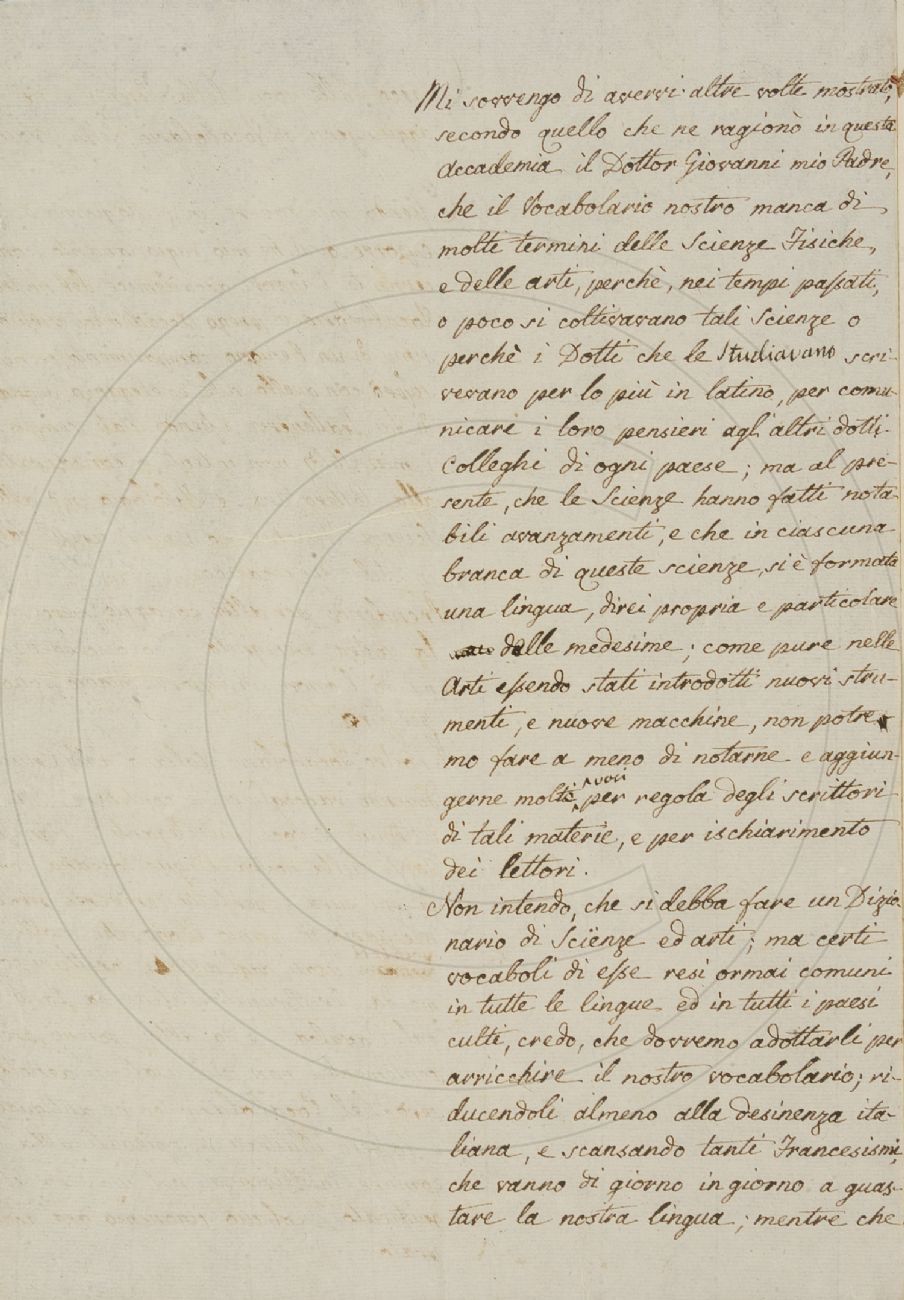 Mi sovvengo di avervi altre volte mostrato,
secondo quello che ne ragionò in questa
Accademia il Dottor Giovanni mio Padre,
che il Vocabolario nostro manca di
molti termini delle Scienze Fisiche,
e delle arti, perchè, nei tempi paſsati,
o poco si coltivavano tali Scienze o
perchè i Dotti che le studiavano scri-
vevano per lo più in latino, per comu-
nicare i loro pensieri agl'altri dotti
Colleghi di ogni paese; ma al pre-
sente, che le Scienze hanno fatti nota
bili avanzamenti, e che in ciascuna
branca di queste scienze, si è formata
una lingua, direi propria e particolare
delle medesime; come pure nelle
Arti eſsendo stati introdotti nuovi stru-
menti, e nuove macchine, non potre
mo fare a meno di notarne e aggiun-
gerne molte voci per regola degli scrittori
di tali materie, e per ischiarimento
dei lettori.
Non intendo, che si debba fare un Dizio
nario di Scienze ed arti; ma certi
vocaboli di eſse resi ormai comuni
in tutte le lingue ed in tutti i paesi
culti, credo, che dovremo adottarli per
arricchire il nostro vocabolario; ri-
ducendoli almeno alla desinenza ita-
liana, e scansando tanti Francesismi,
che vanno di giorno in giorno a guas-
tare la nostra lingua; mentre che